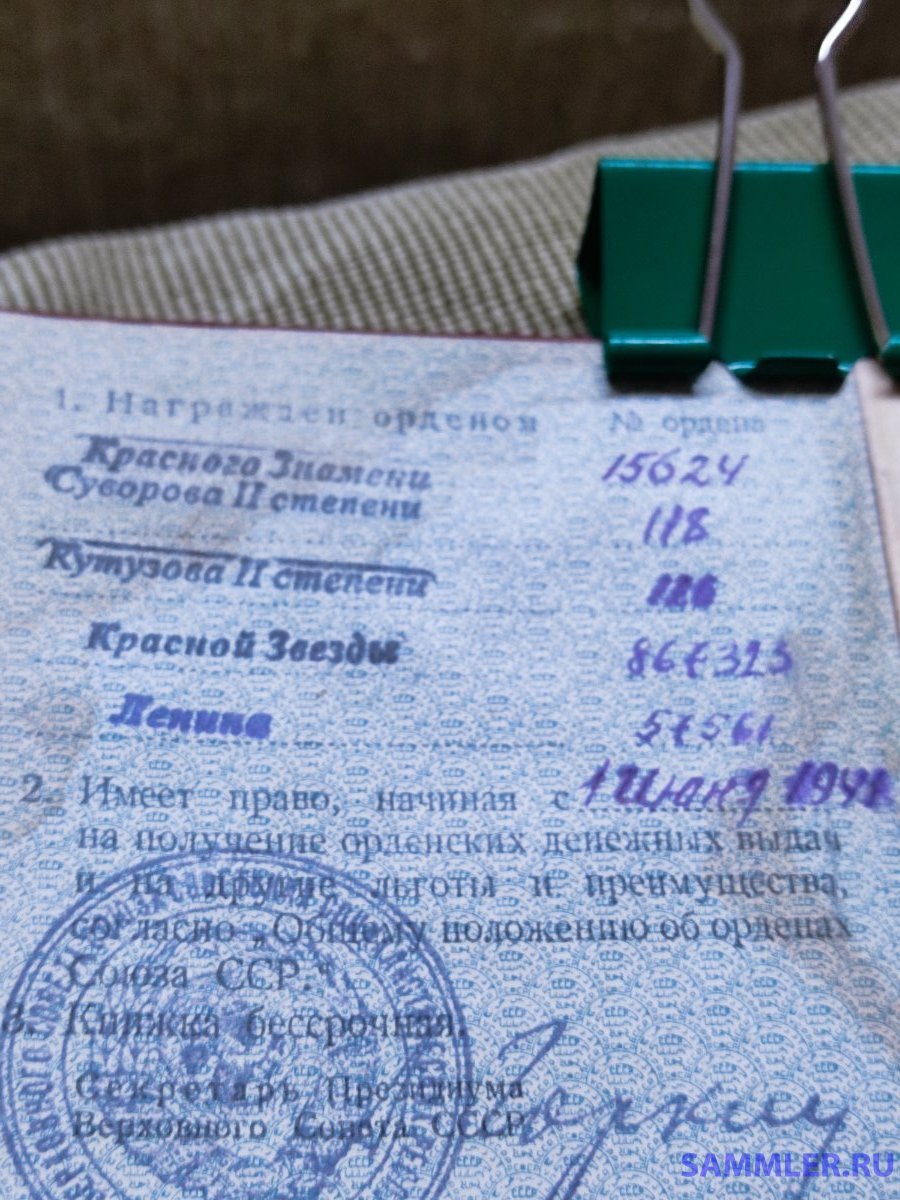 1. Награжден орденом № ордена
Красного Знамени 15624
Суворова II степени 118
Кутузова II степени 126
Красной Звезды 867323
Ленина 57561
2. Имеет право, начиная с 1 июня 1941
на получение орденских денежных выдач
и на другие льготы и преимущества,
согласно „Общему положению об орденах
Союза ССР."
3. Книжка бессрочная.
Секретарь Президиума
Верховного Совета СССР
SAMMLER.RU